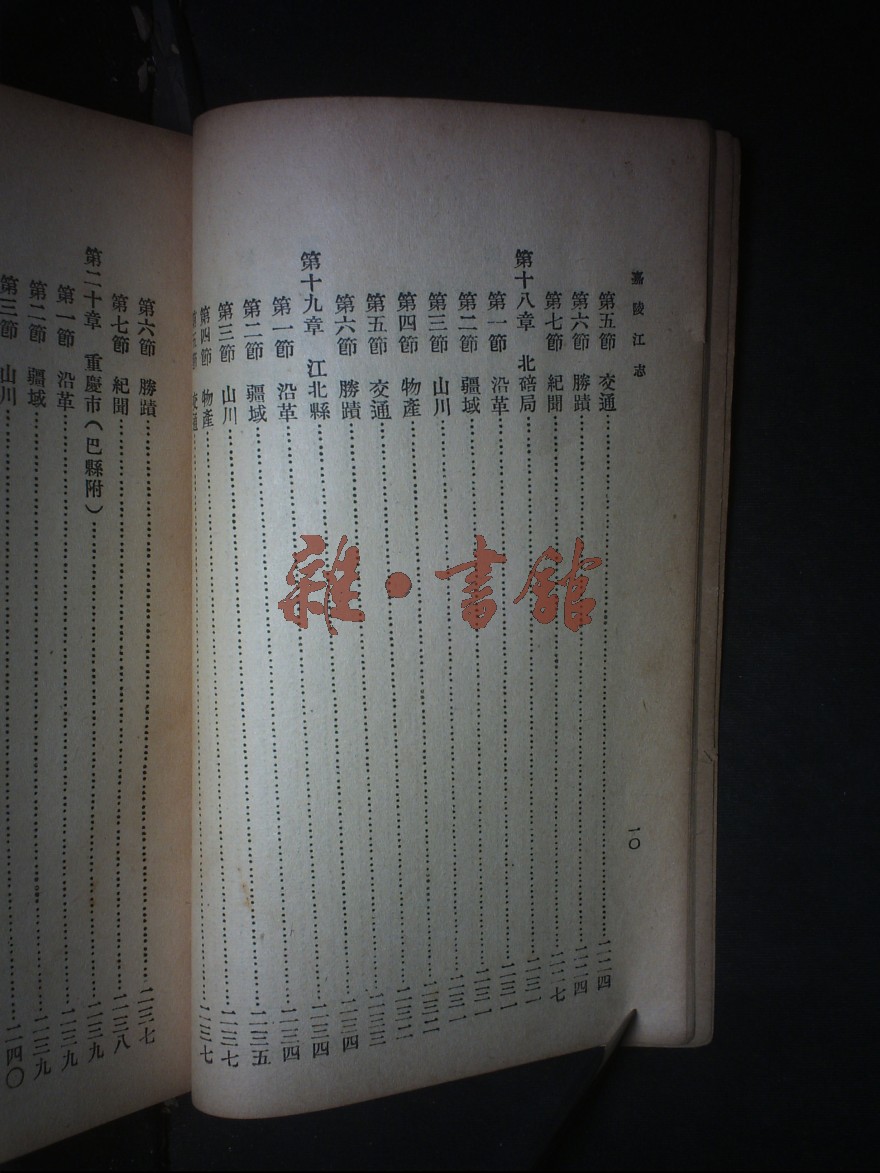 嘉陵江志
一〇
第五節 交通……二二四
第六節 勝蹟……二二四
第七節 紀聞……二二七
第十八章 北碚局……二三一
第一節 沿革……二三一
第二節 疆域……二三一
第三節 山川……二三一
第四節 物產……二三二
第五節 交通……二三二
第六節 勝蹟……二三三
第十九章 江北縣……二三四
第一節 沿革……二三四
第二節 疆域……二三四
第三節 山川……二三五
第四節 物產……二三七
第五節 交通……二三七
第六節 勝蹟……二三七
第七節 紀聞……二三八
第二十章 重慶市(巴縣附)……二三九
第一節 沿革……二三九
第二節 疆域……二三九
第三節 山川……二四〇
雜·書館